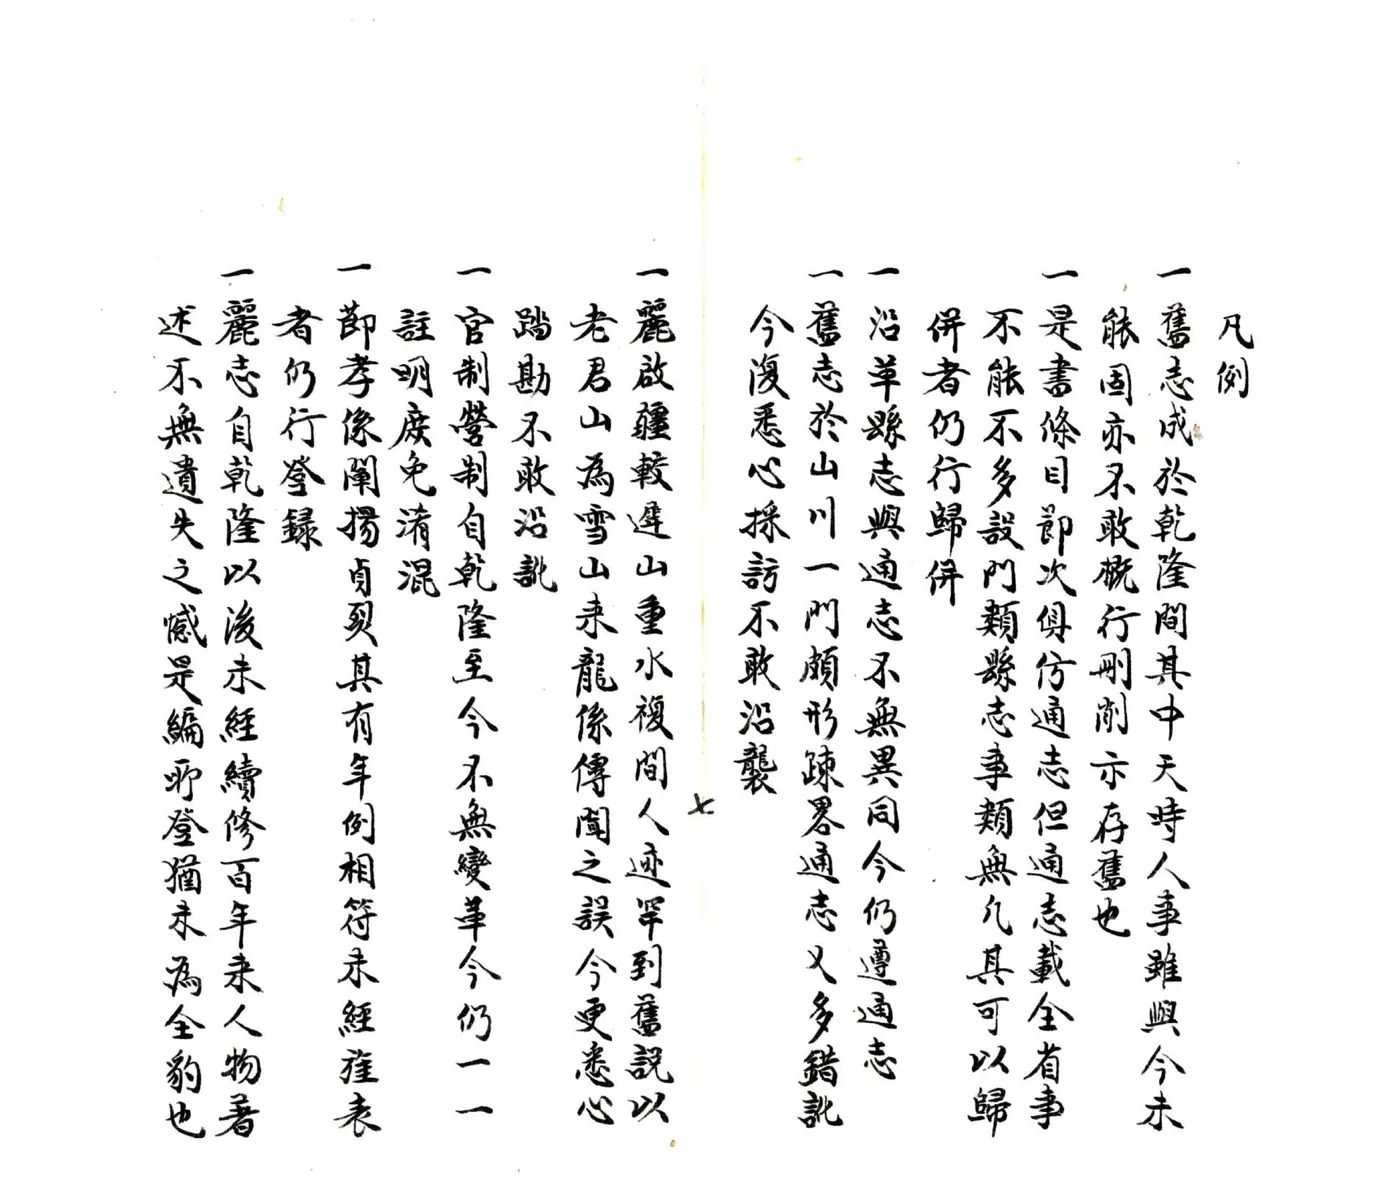 凡例
一舊志成於乾隆間其中天時人事雖與今未
能固亦不敢概行刪削亦存舊也
一是書條目節次俱仿通志但通志載全省事
不能不多設門類縣志事類無几其可以歸
併者仍行歸併
一沿革縣志與通志不無異同今仍遵通志
一舊志於山川一門頗形疎畧通志又多錯訛
今復悉心採訪不敢沿襲
一麗啟疆較遲山重水複間人迹罕到舊説以
老君山為雪山来龍係傳聞之誤今更悉心
踏勘不敢沿訛
一官制營制自乾隆至今不無變革今仍一一
註明庻免淆混
一節孝係闡揚貞烈其有年例相符未經旌表
者仍行登録
一麗志自乾隆以後未經續修百年来人物著
述不無遺失之憾是編所登猶未為全豹也
七